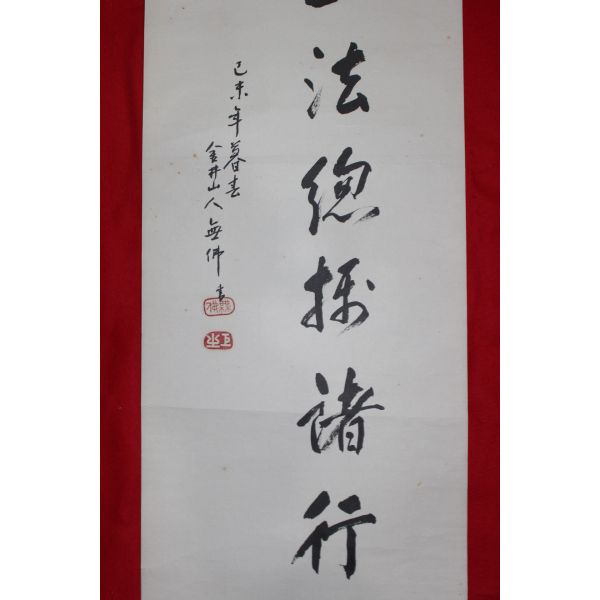 一法總攝諸行
己未年暮春
金井山人無佛書